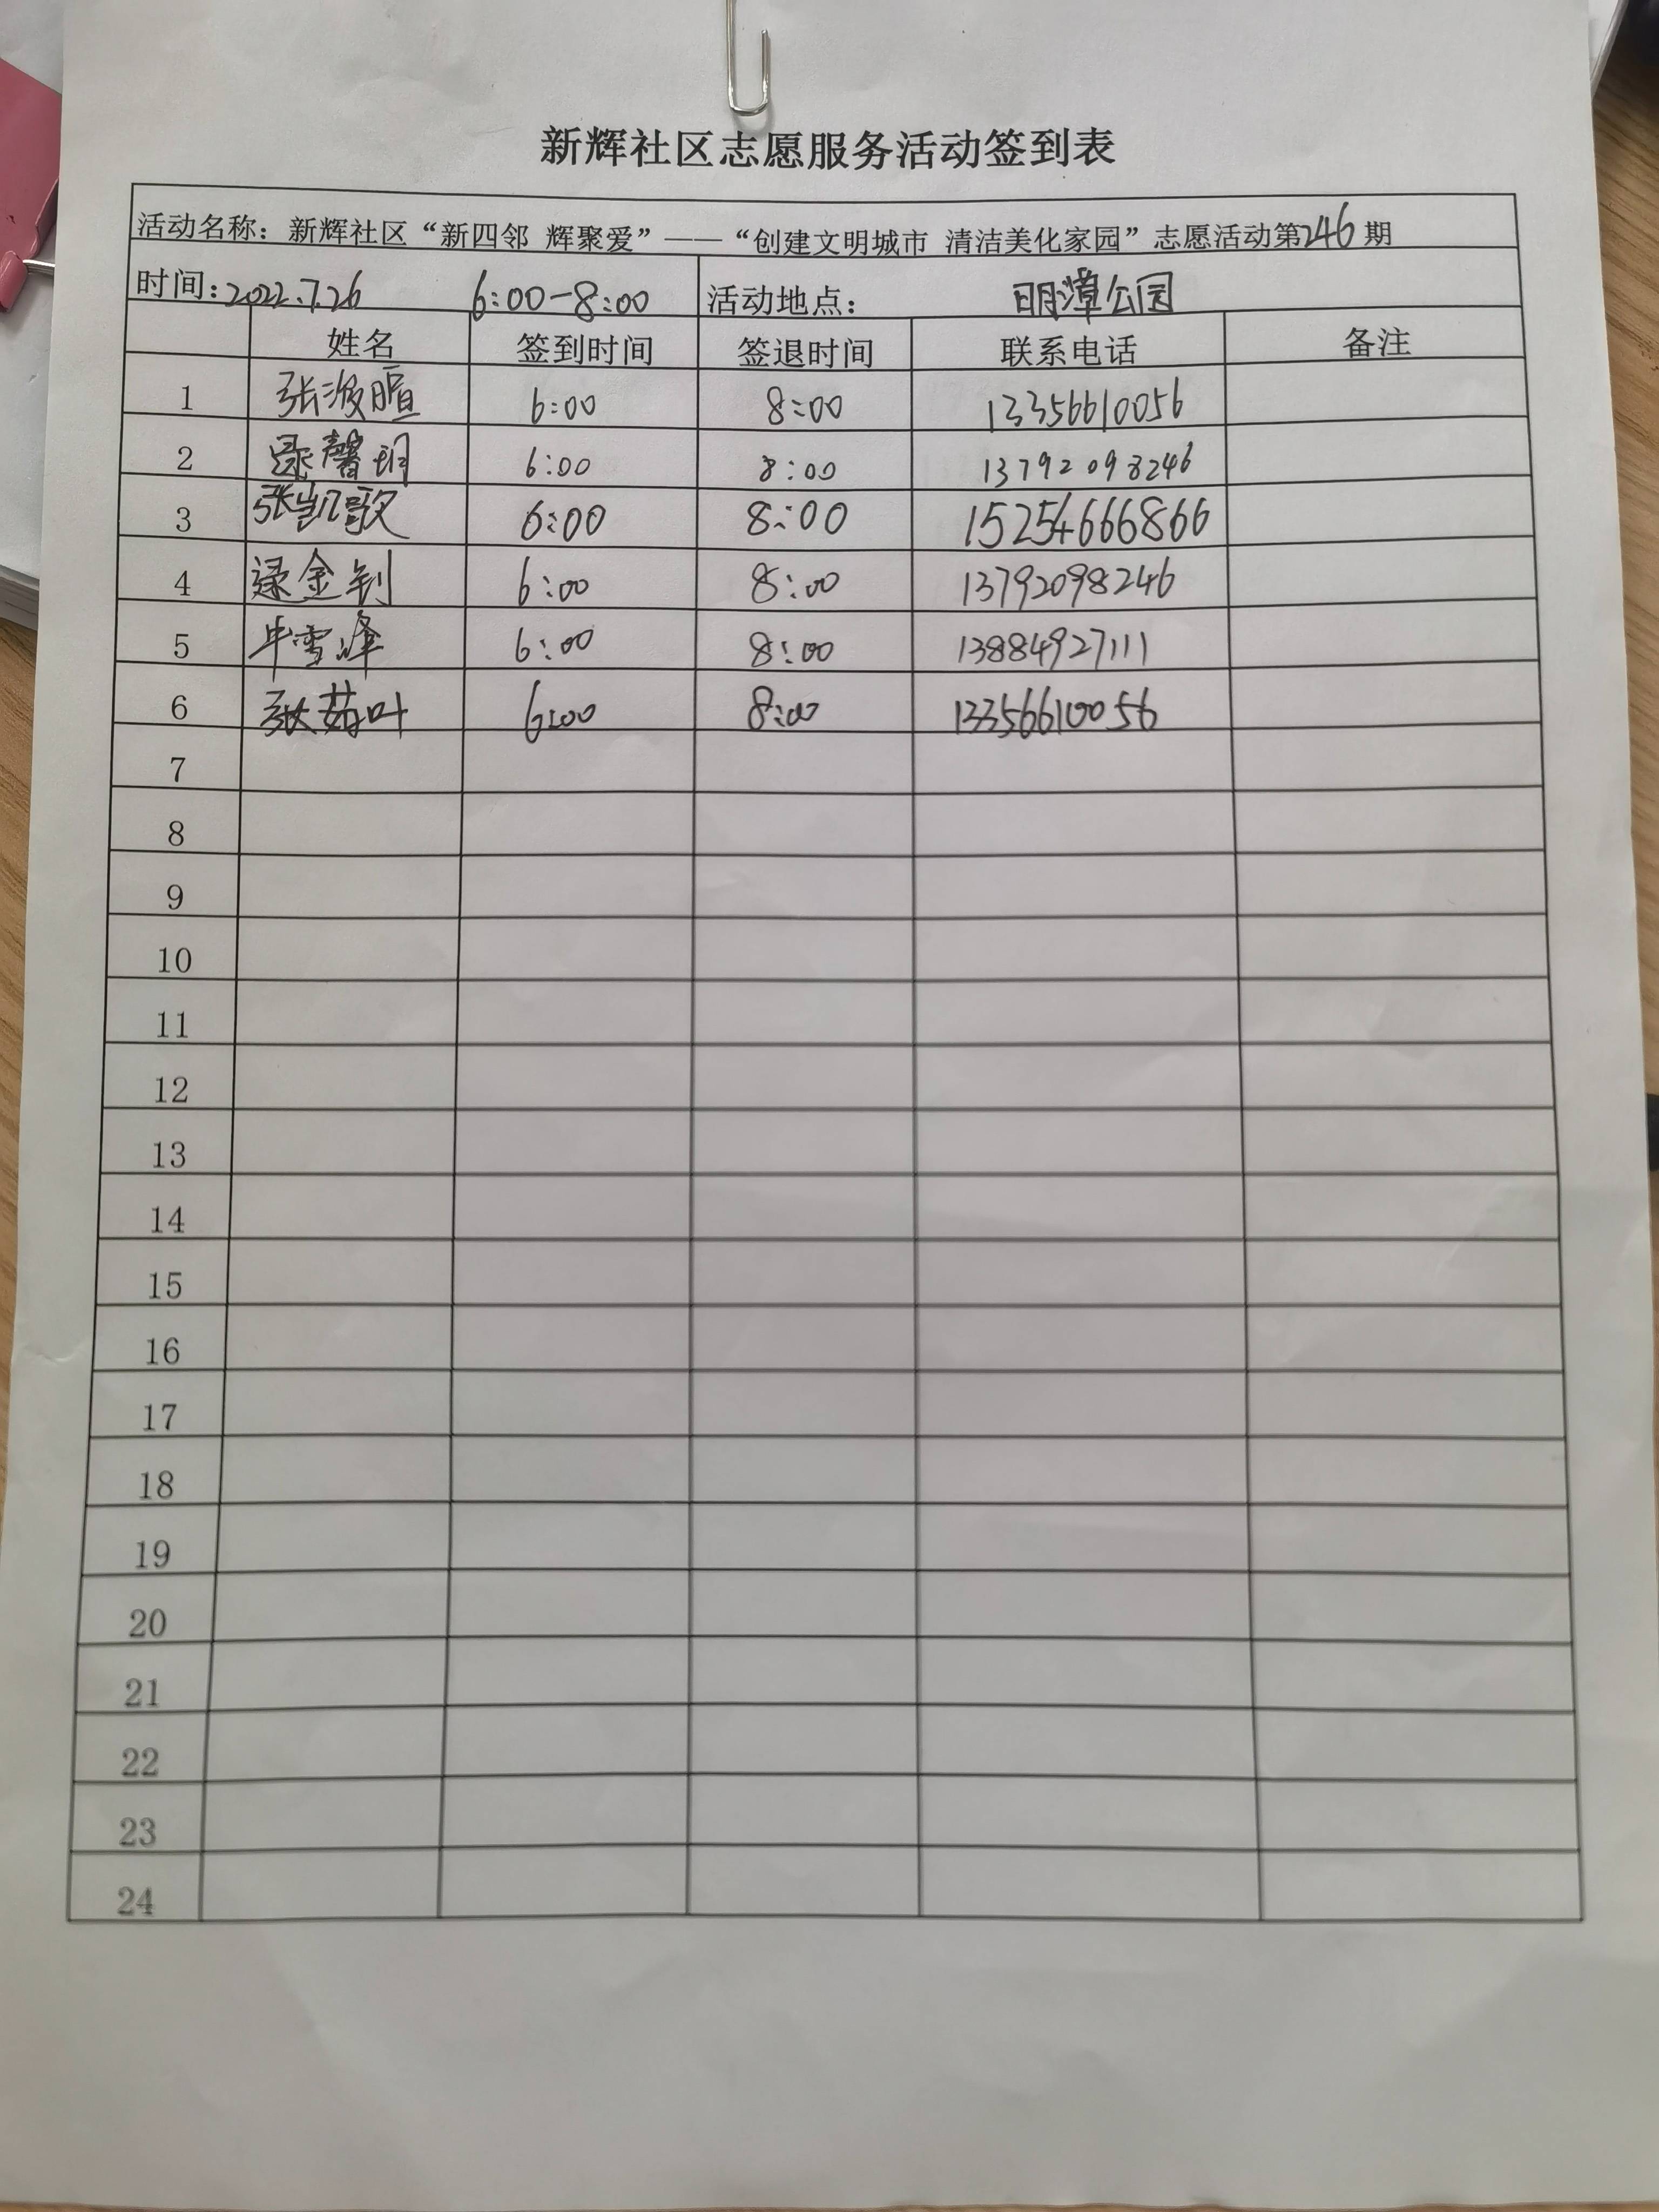 新辉社区志愿服务活动签到表
活动名称：新辉社区“新四邻 辉聚爱”——“创建文明城市 清洁美化家园”志愿活动第246期
时间：2022.7.26 6:00-8:00 活动地点： 明漳公园
姓名 签到时间 签退时间 联系电话 备注
1 张 6:00 8:00 13356610056
2 馨玥 6:00 8:00 13792098246
3 张凯歌 6:00 8:00 15254666866
4 逯金钊 6:00 8:00 13792098246
5 牛雪峰 6:00 8:00 13884927111
6 张茹叶 6:00 8:00 13356610056
7
8
9
10
11
12
13
14
15
16
17
18
19
20
21
22
23
24